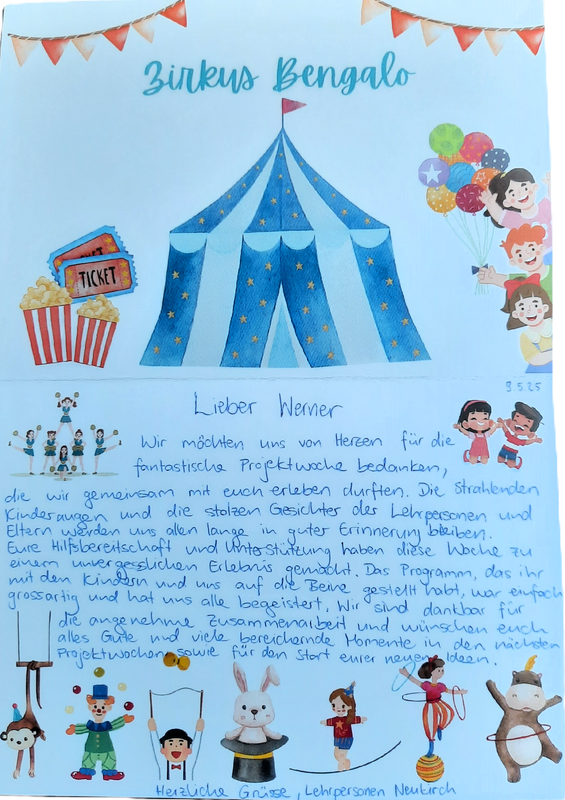 Zirkus Bengalo
TICKET
9.5.25
Lieber Werner
Wir möchten uns von Herzen für die
fantastische Projektwoche bedanken,
die wir gemeinsam mit euch erleben durften. Die strahlenden
Kinderaugen und die stolzen Gesichter der Lehrpersonen und
Eltern werden uns allen lange in guter Erinnerung bleiben.
Eure Hilfsbereitschaft und Unterstützung haben diese Woche zu
einem unvergesslichen Erlebnis gemacht. Das Programm, das ihr
mit den Kindern und uns auf die Beine gestellt habt, war einfach
grossartig und hat uns alle begeistert. Wir sind dankbar für
die angenehme Zusammenarbeit und wünschen euch
alles Gute und viele bereichernde Momente in den nächsten
Projektwochen sowie für den Start eurer neuen Ideen.
Herzliche Grüsse, Lehrpersonen Neukirch